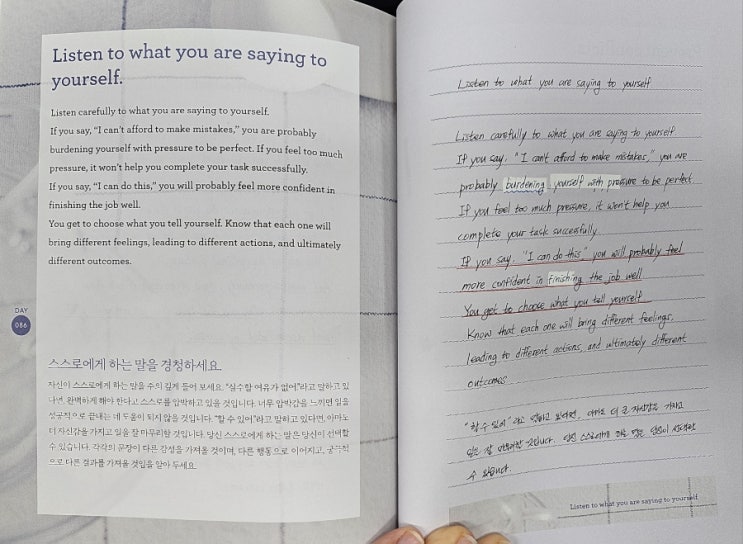 Listen to what you are saying to
yourself.
Listen carefully to what you are saying to yourself.
If you say, "I can't afford to make mistakes," you are probably
burdening yourself with pressure to be perfect. If you feel too much
pressure, it won't help you complete your task successfully.
If you say, "I can do this," you will probably feel more confident in
finishing the job well.
You get to choose what you tell yourself. Know that each one will
bring different feelings, leading to different actions, and ultimately
different outcomes.
DAY
086
스스로에게 하는 말을 경청하세요
자신이 스스로에게 하는 말을 주의 깊게 들어 보세요. "실수할 여유가 없어"라고 말하고 있
다면, 완벽하게 해야 한다고 스스로를 압박하고 있을 것입니다. 너무 압박감을 느끼면 일을
성공적으로 끝내는 데 도움이 되지 않을 것입니다. "할 수 있어"라고 말하고 있다면, 아마도
더 자신감을 가지고 일을 잘 마무리할 것입니다. 당신 스스로에게 하는 말은 당신이 선택할
수 있습니다. 각각의 문장이 다른 감정을 가져올 것이며, 다른 행동으로 이어지고, 궁극적
으로 다른 결과를 가져올 것임을 알아 두세요.
Listen to what you are saying to yourself
Listen carefully to what you are saying to yourself
If you say, "I can't afford to make mistakes," you are
probably burdening yourself with pressure to be perfect
If you feel too much pressure, it won't help you
complete your task successfully
If you say, "I can do this" you will probably feel
more confident in finishing the job well
You get to choose what you tell yourself
Know that each one will bring different feelings,
leading to different actions, and ultimately different
outcomes
"할 수 있어"라고 말하고 있다면, 아마도 더 큰 자신감을 가지고
일을 잘 마무리할 것입니다. 당신 스스로에게 하는 말은 당신이 선택할
수 있습니다
Listen to what you are saying to yourself